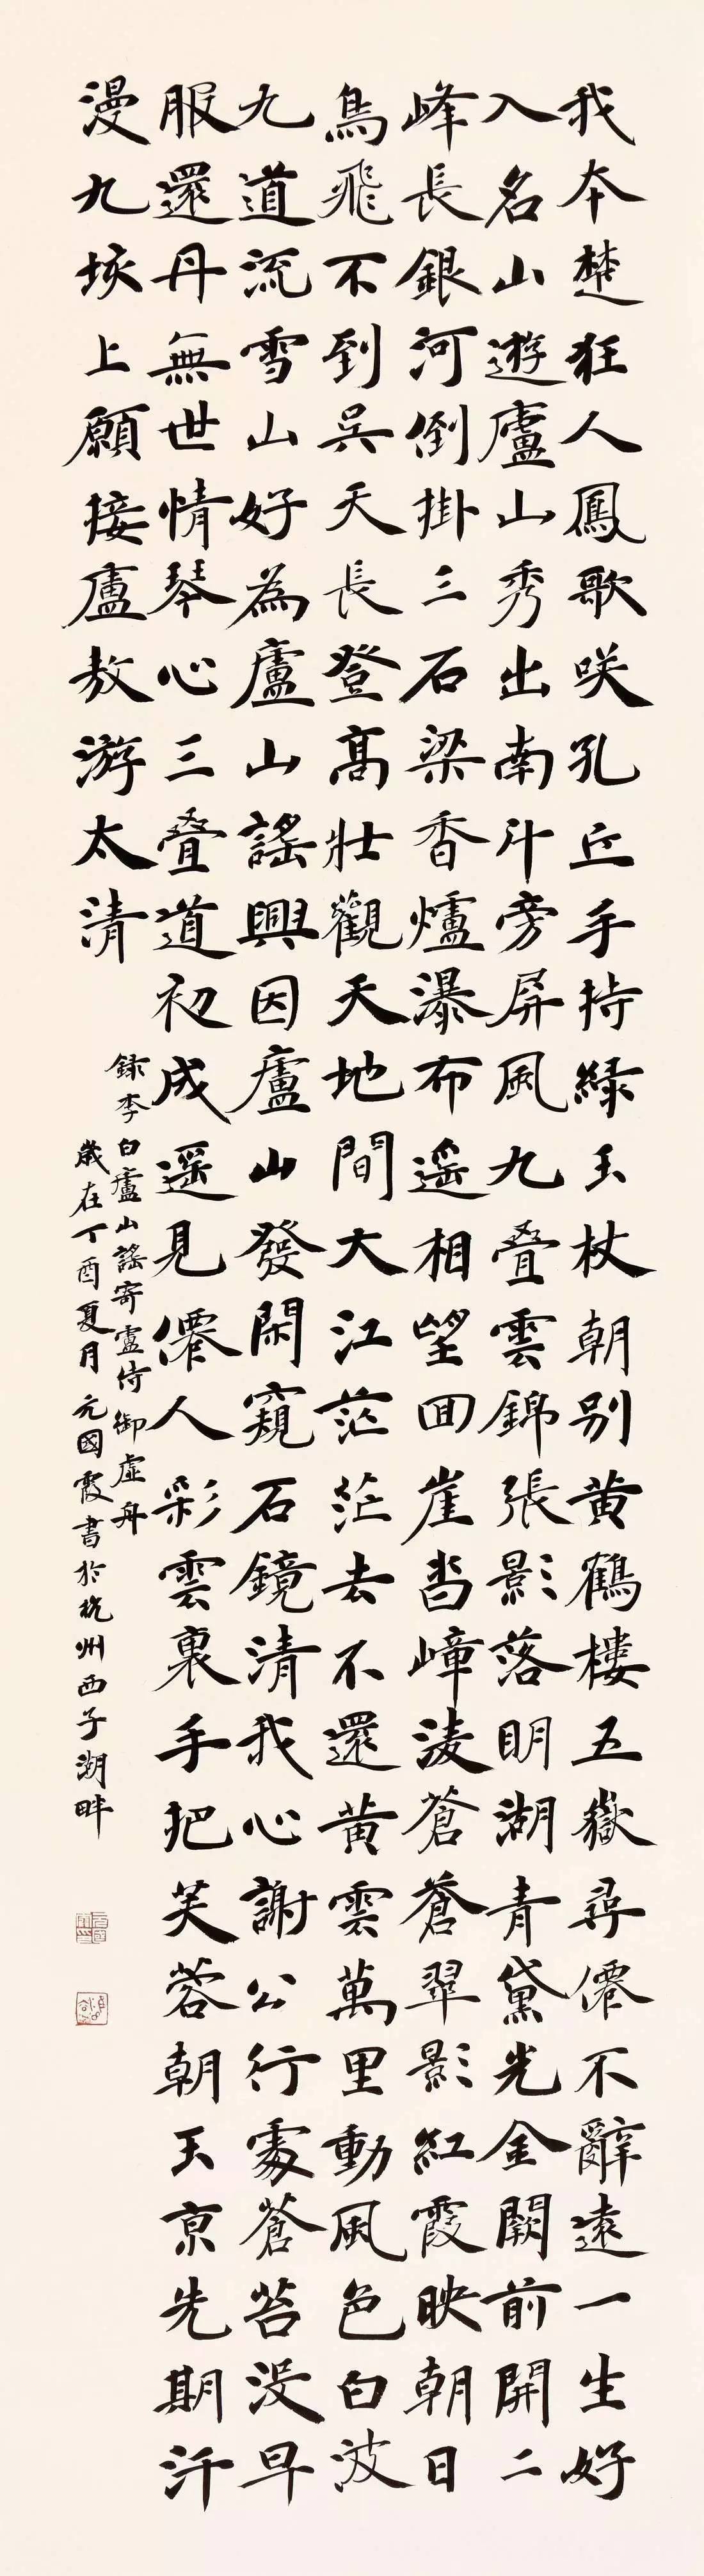 我本楚狂人鳳歌咲孔丘手持緑玉杖朝别黄鶴樓五嶽尋僊不辭遠一生好
入名山遊廬山秀出南斗旁屏風九疊雲錦張影落明湖青黛光金闕前開二
峰長銀河倒掛三石梁香爐瀑布遥相望回崖沓嶂淩蒼蒼翠影紅霞映朝日
鳥飛不到吳天長登高壯觀天地間大江茫茫去不還黄雲萬里動風色白波
九道流雪山好為廬山謠興因廬山發閑窺石鏡清我心謝公行處蒼苔没早
服還丹無世情琴心三疊道初成遥見僊人彩雲裏手把芙蓉朝玉京先期汗
漫九垓上願接廬敖游太清
録李白廬山謠寄盧侍御虛舟
歲在丁酉夏月元國霞書於杭州西子湖畔